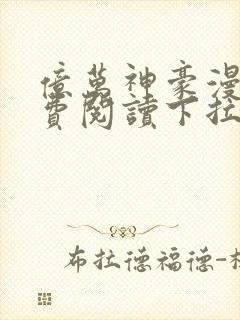 億萬神豪漫
費閱讀下拉
布拉德福德-